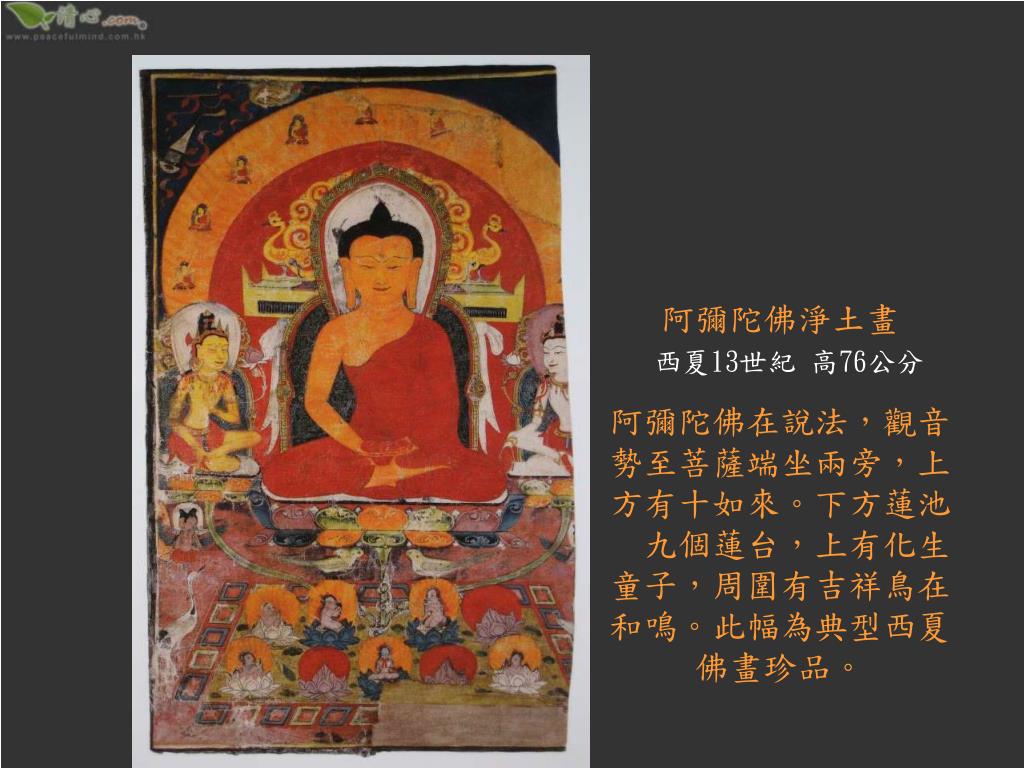 清心.com
www.peacefulmind.com.hk
阿彌陀佛淨土畫
西夏13世紀 高76公分
阿彌陀佛在說法，觀音
勢至菩薩端坐兩旁，上
方有十如來。下方蓮池
九個蓮台，上有化生
童子，周圍有吉祥鳥在
和鳴。此幅為典型西夏
佛畫珍品。